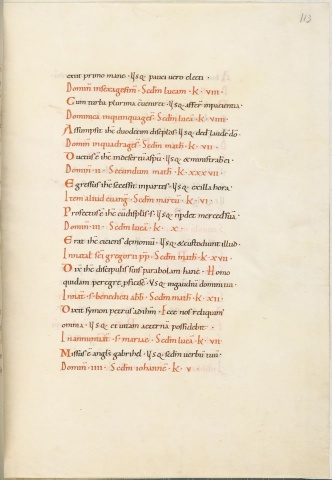 113
exiit primo mane · Usq; pauci uero electi ·
Domin̄ in sexagesim̄ · Sedm̄ lucam · k · viii ·
Cum turba plurima conueniret · usq; afferr̄ in pacientia ·
Dominica in quinquages̄ Sedm̄ lucā · k · viiii ·
Assumpsit ih̄c duodecim discipłos · usq; ded̄ laudē dō ·
Domin̄ in quadrages̄ · Sedm̄ math̄ · k · vii ·
Ductus ē ih̄c in desertū a sp̄u · usq; & ministrab̄ ei ·
Domin̄ · ii · Secundum math̄ · k · xxxvii ·
Egressus ih̄c secessit in partes · usq; ex illa hora ·
Item aliud euanḡ · Sedm̄ marcū · k · vi ·
Domin̄ · iii · Sedm̄ lucā · k · x ·
Erat ih̄c eiciens demoniū · usq; & custodiunt illud ·
In natal̄ sc̄i gregorii pp̄ · Sedm̄ math̄ · k · xvii ·
Dix̄ ih̄c discipulis suis parabolam hanc · Homo
quidam peregre p̄ficisc̄ · Usq; in gaudiū domini tui ·
In nat̄ · s̄ · benedicti abb̄ · Sedm̄ math̄ · k · xii ·
Dixit symon petrus ad ih̄m · Ecce nos reliquim̄
omnia · usq; et uitam aeternā possidebit ·
In annuntiat̄ · s̄ · mariae · Sedm̄ lucā · k · vii ·
Missus ē angls̄ gabrihel · usq; sedm̄ uerbū tuū ·
Domin̄ · iiii · Sedm̄ iohannē · k · v ·